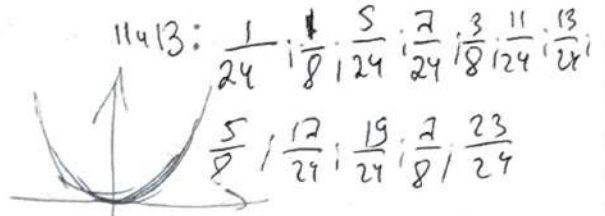 11 и 13: 1/24 ; 1/8 ; 5/24 ; 7/24 ; 3/8 ; 11/24 ; 13/24 ;
5/8 ; 17/24 ; 19/24 ; 7/8 ; 23/24